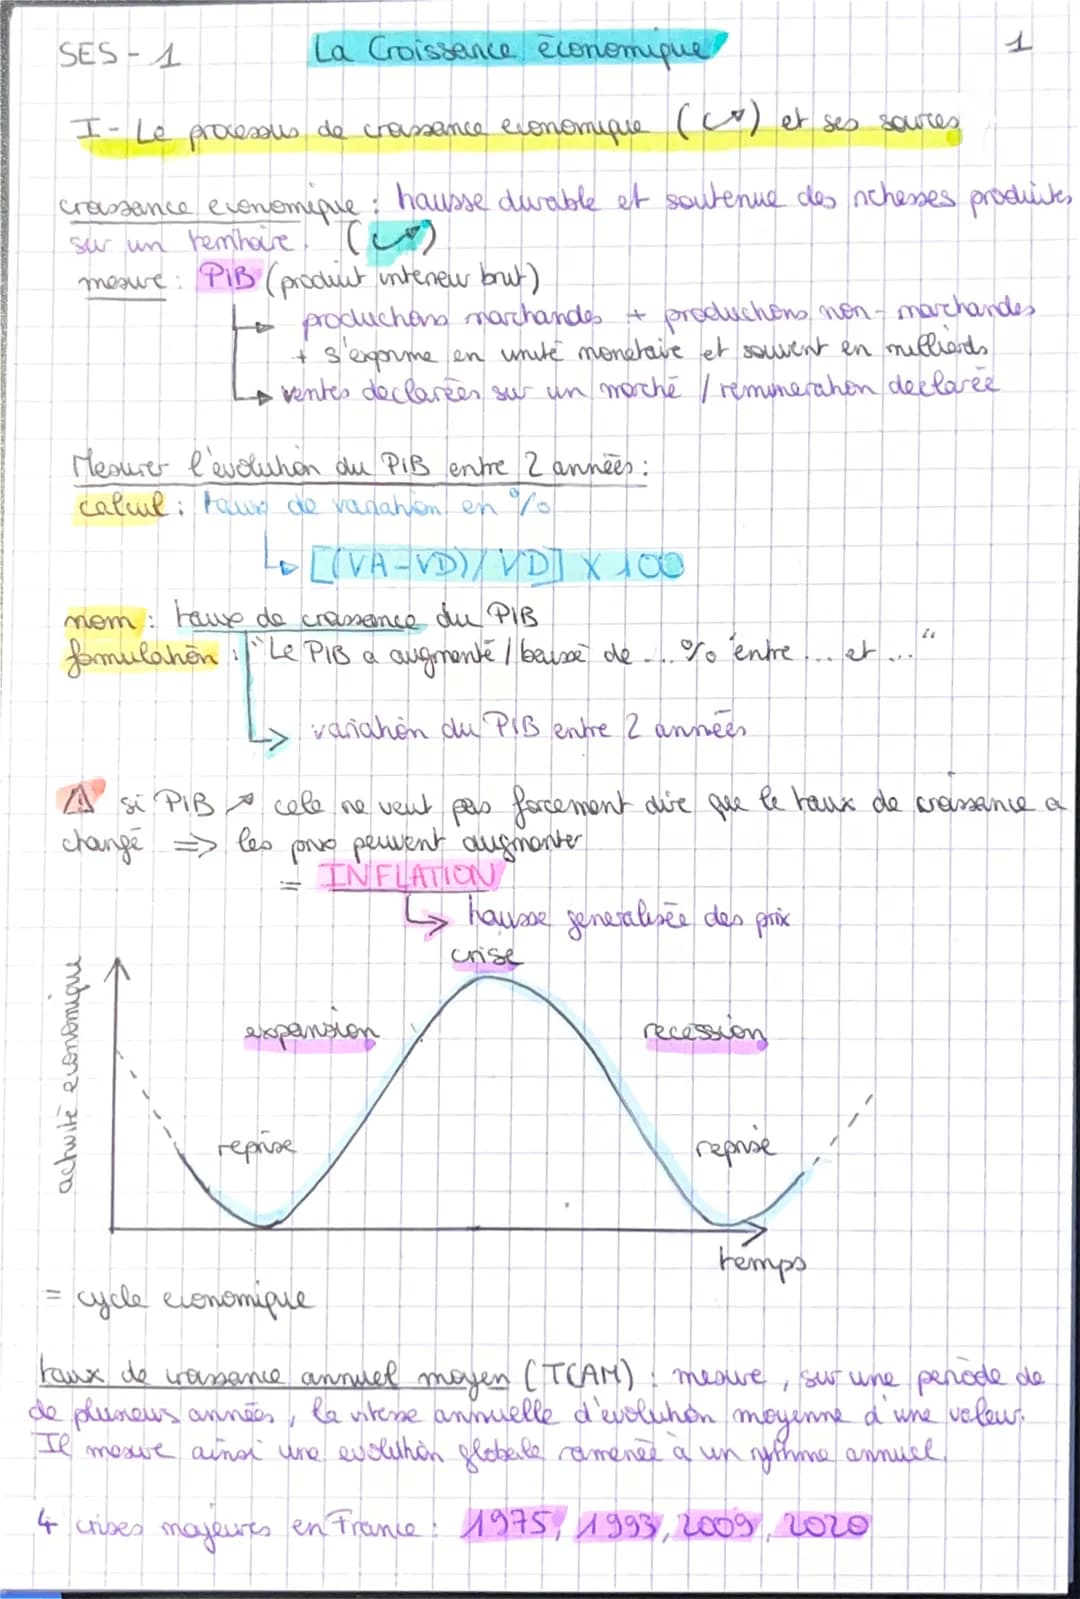 SES - 1
La Croissance économique
1
I - Le processus de croissance economique (↗) et ses sources
croissance economique : hausse durable et soutenue des richesses produites
sur un territoire. (↗)
mesure : PIB (produit interieur brut)
↳ productions marchandes + productions non-marchandes
+ s'exprime en unité monetaire et souvent en milliards
↳ ventes declarées sur un marché / remuneration declarée
Mesurer l'evolution du PIB entre 2 années :
calcul : taux de variation en %
↳ [(VA-VD)/VD] x 100
nom : taux de croissance du PIB
formulation : "Le PIB a augmenté / baissé de ... % entre ... et ..."
↳ variation du PIB entre 2 années
⚠ si PIB ↗ cela ne veut pas forcement dire que le taux de croissance a
changé => les prix peuvent augmenter
= INFLATION
↳ hausse generalisée des prix
crise
expansion
recession
activité economique
reprise
reprise
temps
= cycle economique
taux de croissance annuel moyen (TCAM) : mesure, sur une periode de
de plusieurs années, la vitesse annuelle d'evolution moyenne d'une valeur.
Il mesure ainsi une evolution globale ramenée à un rythme annuel.
4 crises majeures en France : 1975, 1993, 2009, 2020